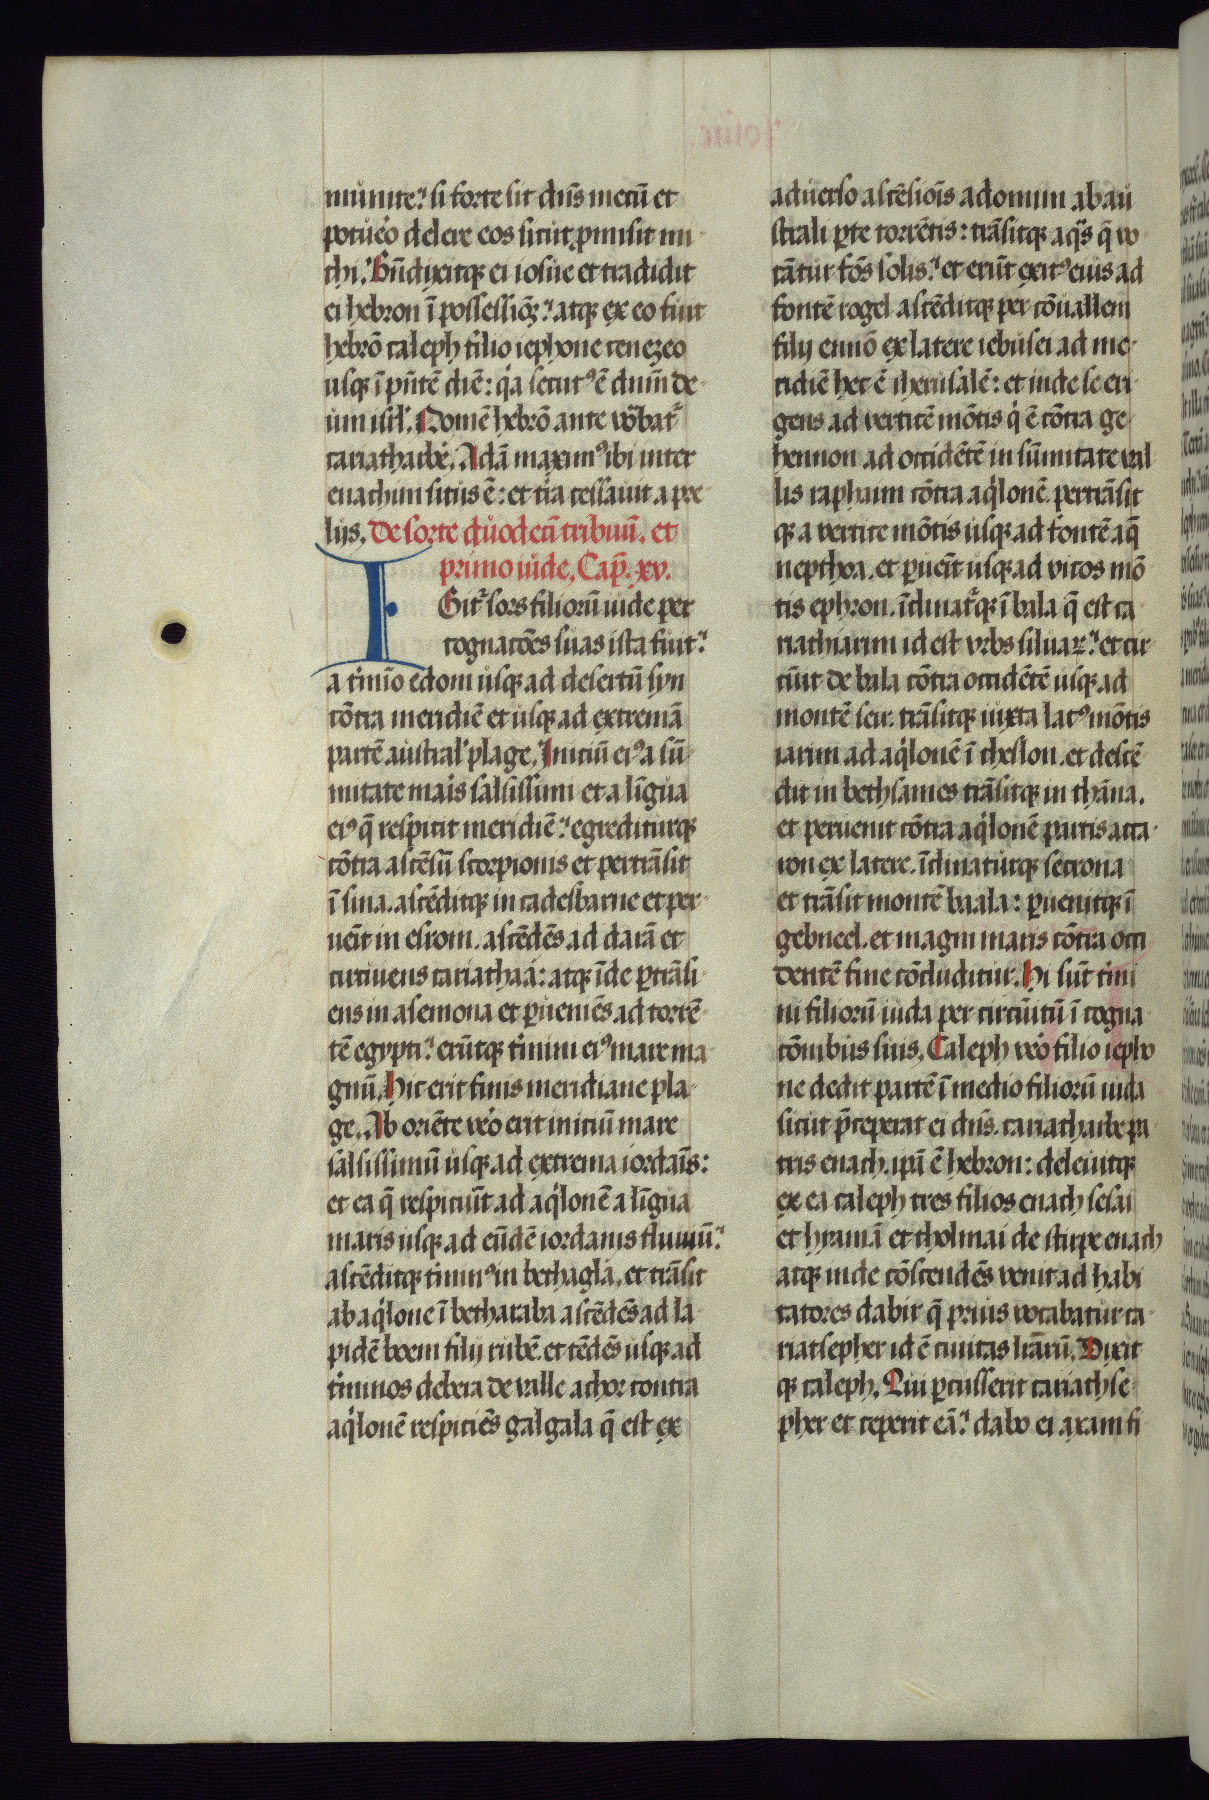 munite: si forte sit dn̄s mecū et
potuẽo delere eos sicut ꝓmisit mi-
chi: Bn̄dixitqꝫ ei iosue et tradidit
ei hebron ī possessiōꝫ: atqꝫ ex eo fuit
hebrō caleph filio iephone cenezeo
usqꝫ ī pn̄tē diē: qꝛa secutꝰ ē dum̄ de-
um isrl̓. Nomē hebrō ante vo̓bat᷑
cariatharbe. Adā maximꝰ ibi inter
enachim situs ē: et tr̄a cessauit a pre
lijs. De sorte duodecī tribuū. et
primo iude. Cap̄. xv.
IGit᷑ sors filioꝛū iude per
cognatōes suas ista fuit:
a t̓mīo edom usqꝫ ad desertū syn
cōtra meridiē et usqꝫ ad extremā
partē austral̓ plage. Iniciū eiꝰ a sū-
mitate mar̓s salsissimi et a līgua
eiꝰ q̄ respicit meridiē: egrediturqꝫ
cōtra ascēsū scorpionis et pertrāsit
ī sina. ascēditqꝫ in cadesbarne et per-
ueīt in esrom. ascēdēs ad darā et
circuiens cariathaa: atqꝫ īde ꝑtrāsi-
ens in asemona et ꝑueniēs ad torrē-
tē egypti: erūtqꝫ t̓mini eiꝰ mare ma-
gnū. Hic erit finis meridiane pla-
ge. Ab oriēte vo̓ erit iniciū mare
salsissimū usqꝫ ad extrema iordaīs:
et ea q̄ respiciūt ad aq̓lonē a līgua
maris usqꝫ ad eūdē iordanis fluuiū:
ascēditqꝫ t̓minꝰ in bethagla. et trāsit
ab aq̓lone ī betharaba ascēdēs ad la-
pidē boem filij rubē. et tēdēs usqꝫ ad
t̓minos debera de valle achor contra
aq̓lonē respiciēs galgala q̄ est ex
aduerso ascēsiōis adomim ab au
strali ꝑte torrētis: trāsitqꝫ aq̓s q̄ vo-
cātur fōs solis: et erūt exitꝰ eius ad
fontē rogel ascēditqꝫ per cōuallem
filij ennō ex latere iebusei ad me-
ridiē hec ē iherusalē: et inde se eri-
gens ad verticē mōtis q̓ ē cōtra ge-
hennon ad occidētē in sūmitate val
lis raphaim cōtra aq̓lonē. pertrāsit
qꝫ a vertice mōtis usqꝫ ad fontē aq̄
nepthoa. et ꝑueīt usqꝫ ad vicos mō
tis ephron. īclinat᷑qꝫ ī bala q̄ est ca
riathiarim id est vrbs siluaꝝ: et cir
cūit de bala cōtra occidētē usqꝫ ad
montē seir. trāsitqꝫ iuxta latꝰ mōtis
iarim ad aq̓lonē ī cheslon. et descē
dit in bethsames trāsitqꝫ in thāna.
et peruenit cōtra aq̓lonē partis acca-
ron ex latere. īclinaturqꝫ secrona
et trāsit montē baala: ꝑuenitqꝫ ī
gebneel. et magni maris cōtra occi
dentē fine cōcluditur. Hi sūt t̓mi
ni filioꝛū iuda per circuitū ī cogna
cōnibus suis. Caleph vo̓ filio iepho
ne dedit partē ī medio filioꝛū iuda
sicut p̄ceperat ei dn̄s. cariatharbe pa
tris enach. ip̄a ē hebron: deleuitqꝫ
ex ea caleph tres filios enach sesai
et hyramā et tholmai de stirpe enach
atqꝫ inde cōscendēs venit ad habi
tatores dabir q̄ prius vocabatur ca-
riatsepher id ē ciuitas lr̄arū. Dixit
qꝫ caleph. Qui ꝑcusserit cariathse-
pher et ceperit eā: dabo ei axam fi